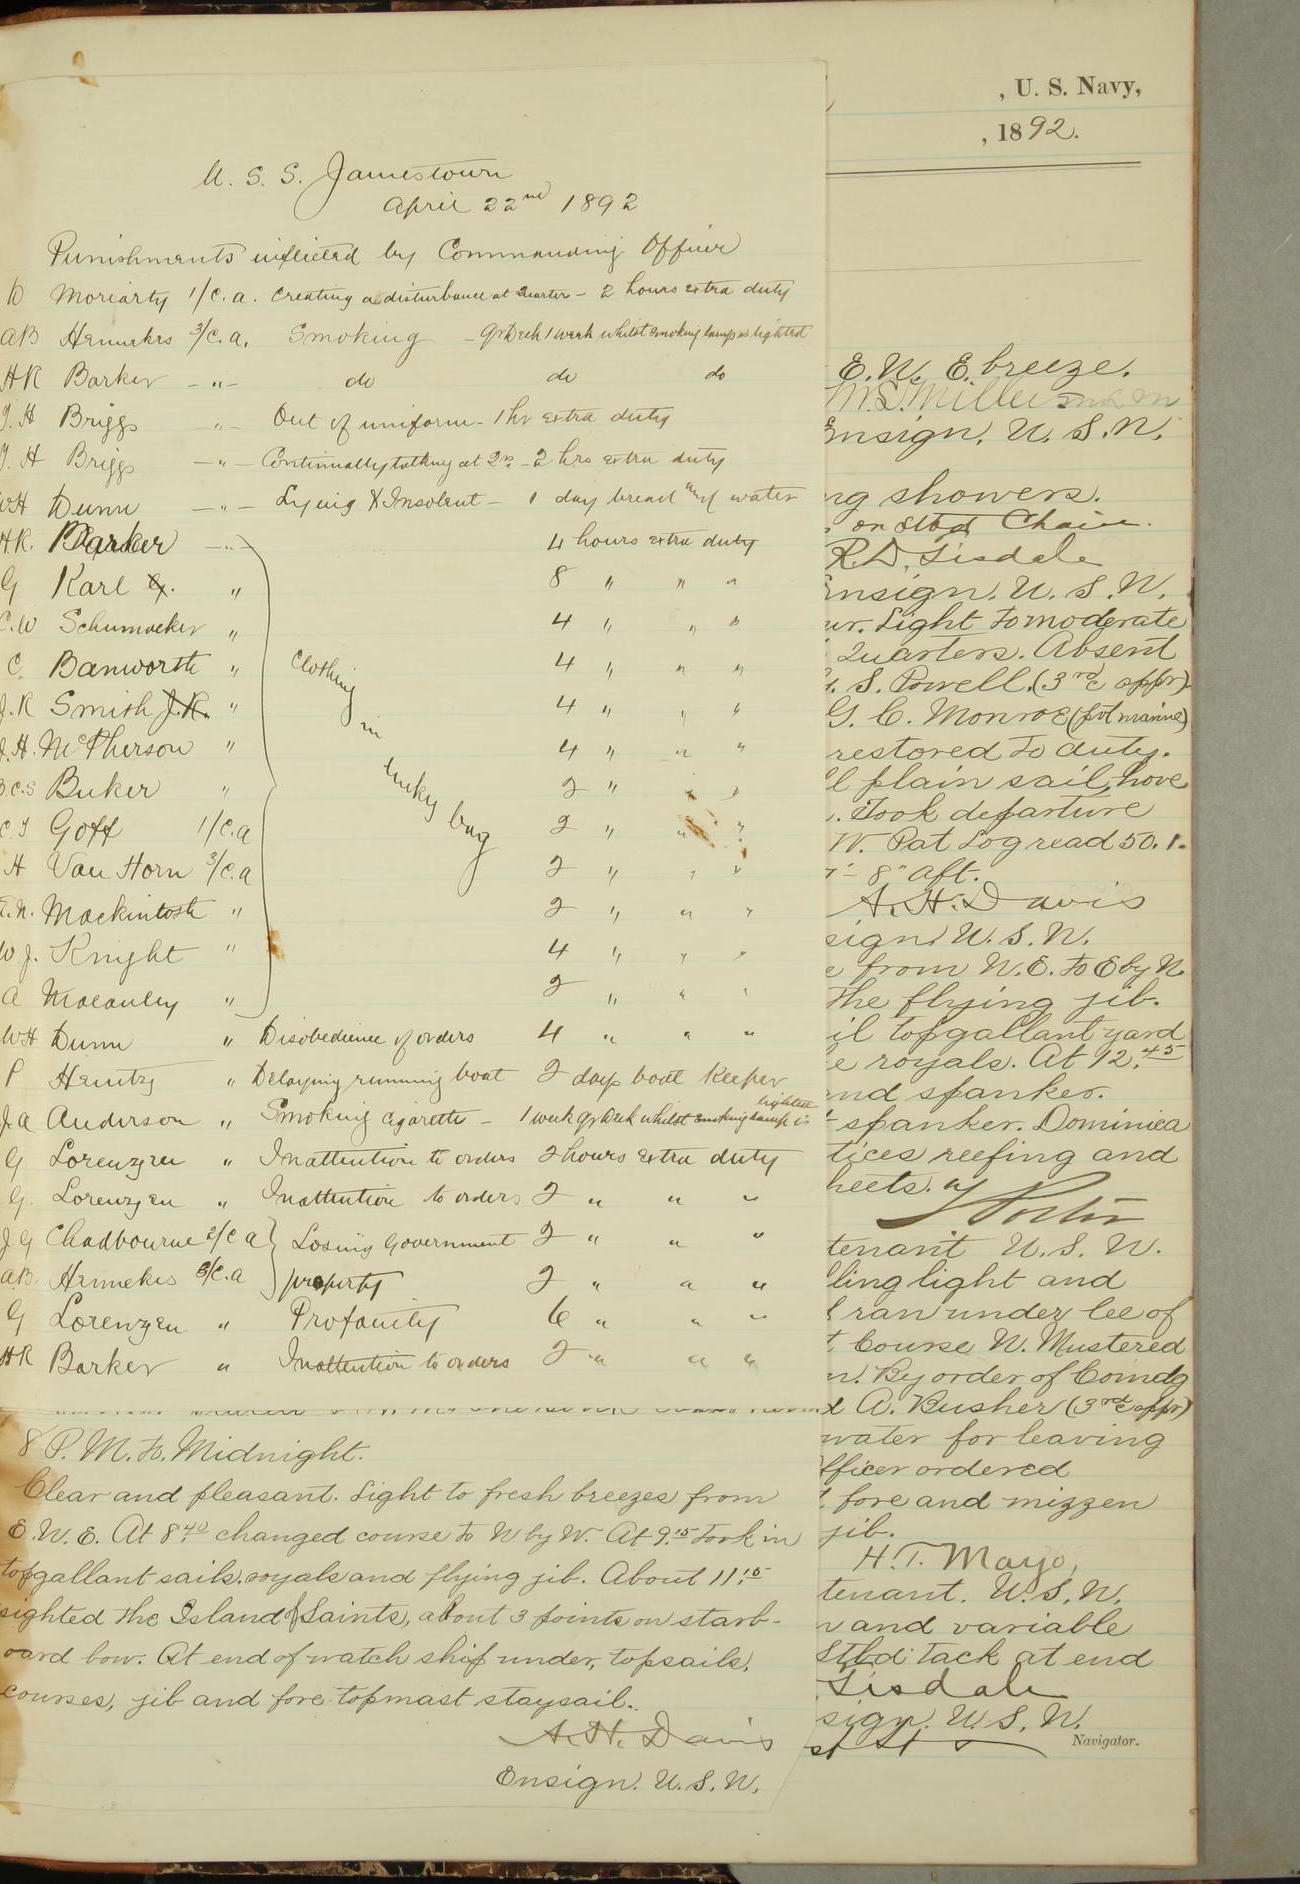 U. S. S. Jamestown
April 22nd 1892
Punishments inflicted by Commanding Officer
D Moriarty 1/c. a. Creating a disturbance at Quarters – 2 hours extra duty
AB Hennekes 3/c. a. Smoking – 1 week whilst smoking lamp is lighted
HR Barker – " – do do do
T. H Briggs – " – Out of uniform – 1 hr extra duty
T. H Briggs – " – Continually talking at Qrs – 2 hrs extra duty
WH Dunn – " – Lying & Insolent – 1 day bread and water
HR. Barker – " – 4 hours extra duty
G Karl G. " 8 " " "
C. W Schumacker " 4 " " "
C. Banworth " Clothing 4 " " "
J. R Smith J.R. " in 4 " " "
J. H. McPherson " 4 " " "
B.C.S Buker " lucky bag 2 " " "
C. T Goff 1/c. a 2 " " "
H Van Horn 3/c. a 2 " " "
Mackintosh " 2 " " "
W J. Knight " 4 " " "
A Macauley " 2 " " "
WH Dunn " Disobedience of orders 4 " " "
P Heintz " Delaying running boat 2 days boat keeper
J. A Anderson " Smoking cigarette – 1 week whilst smoking lamp is lighted
G Lorenzen " Inattention to orders 2 hours extra duty
G. Lorenzen " Inattention to orders 2 " " "
J. G Chadbourne 2/c a } Losing Government 2 " " "
AB. Hennekes 3/c. a } property 2 " " "
G Lorenzen " Profanity 6 " " "
HR Barker " Inattention to orders 2 " " "
8 P. M. to Midnight.
Clear and pleasant. Light to fresh breezes from
E. N. E. At 8.40 changed course to N by W. At 9.15 took in
topgallant sails, royals and flying jib. About 11.15
sighted the Island of Saints, about 3 points on starb-
oard bow. At end of watch ship under, topsails,
courses, jib and fore topmast staysail.
A. H. Davis
Ensign. U. S. N.
, U. S. Navy,
, 1892.
E. N. E. breeze.
M. S. Miller
Ensign. U. S. N.
ng showers.
on stbd Chain.
R. D. Tisdale
Ensign. U. S. N.
Light to moderate
Quarters. Absent
S. Powell. (3rd c appr)
G. C. Monroe (pvt marine)
restored to duty.
l plain sail, hove
. Took departure
W. Pat Log read 50.1.
8" aft.
A. H. Davis
sign. U. S. N.
e from N. E. to E by N.
the flying jib.
il topgallant yard
e royals. At 12.45
nd spanker.
spanker. Dominica
tices reefing and
heets.
tenant U. S. N.
ling light and
ran under lee of
Course N. Mustered
n. By order of Comdg
A. Busher (3rd c appr)
water for leaving
fficer ordered
fore and mizzen
jib.
H. T. Mayo,
tenant. U. S. N.
and variable
Stbd tack at end
Tisdale
sign. U. S. N.
Navigator.